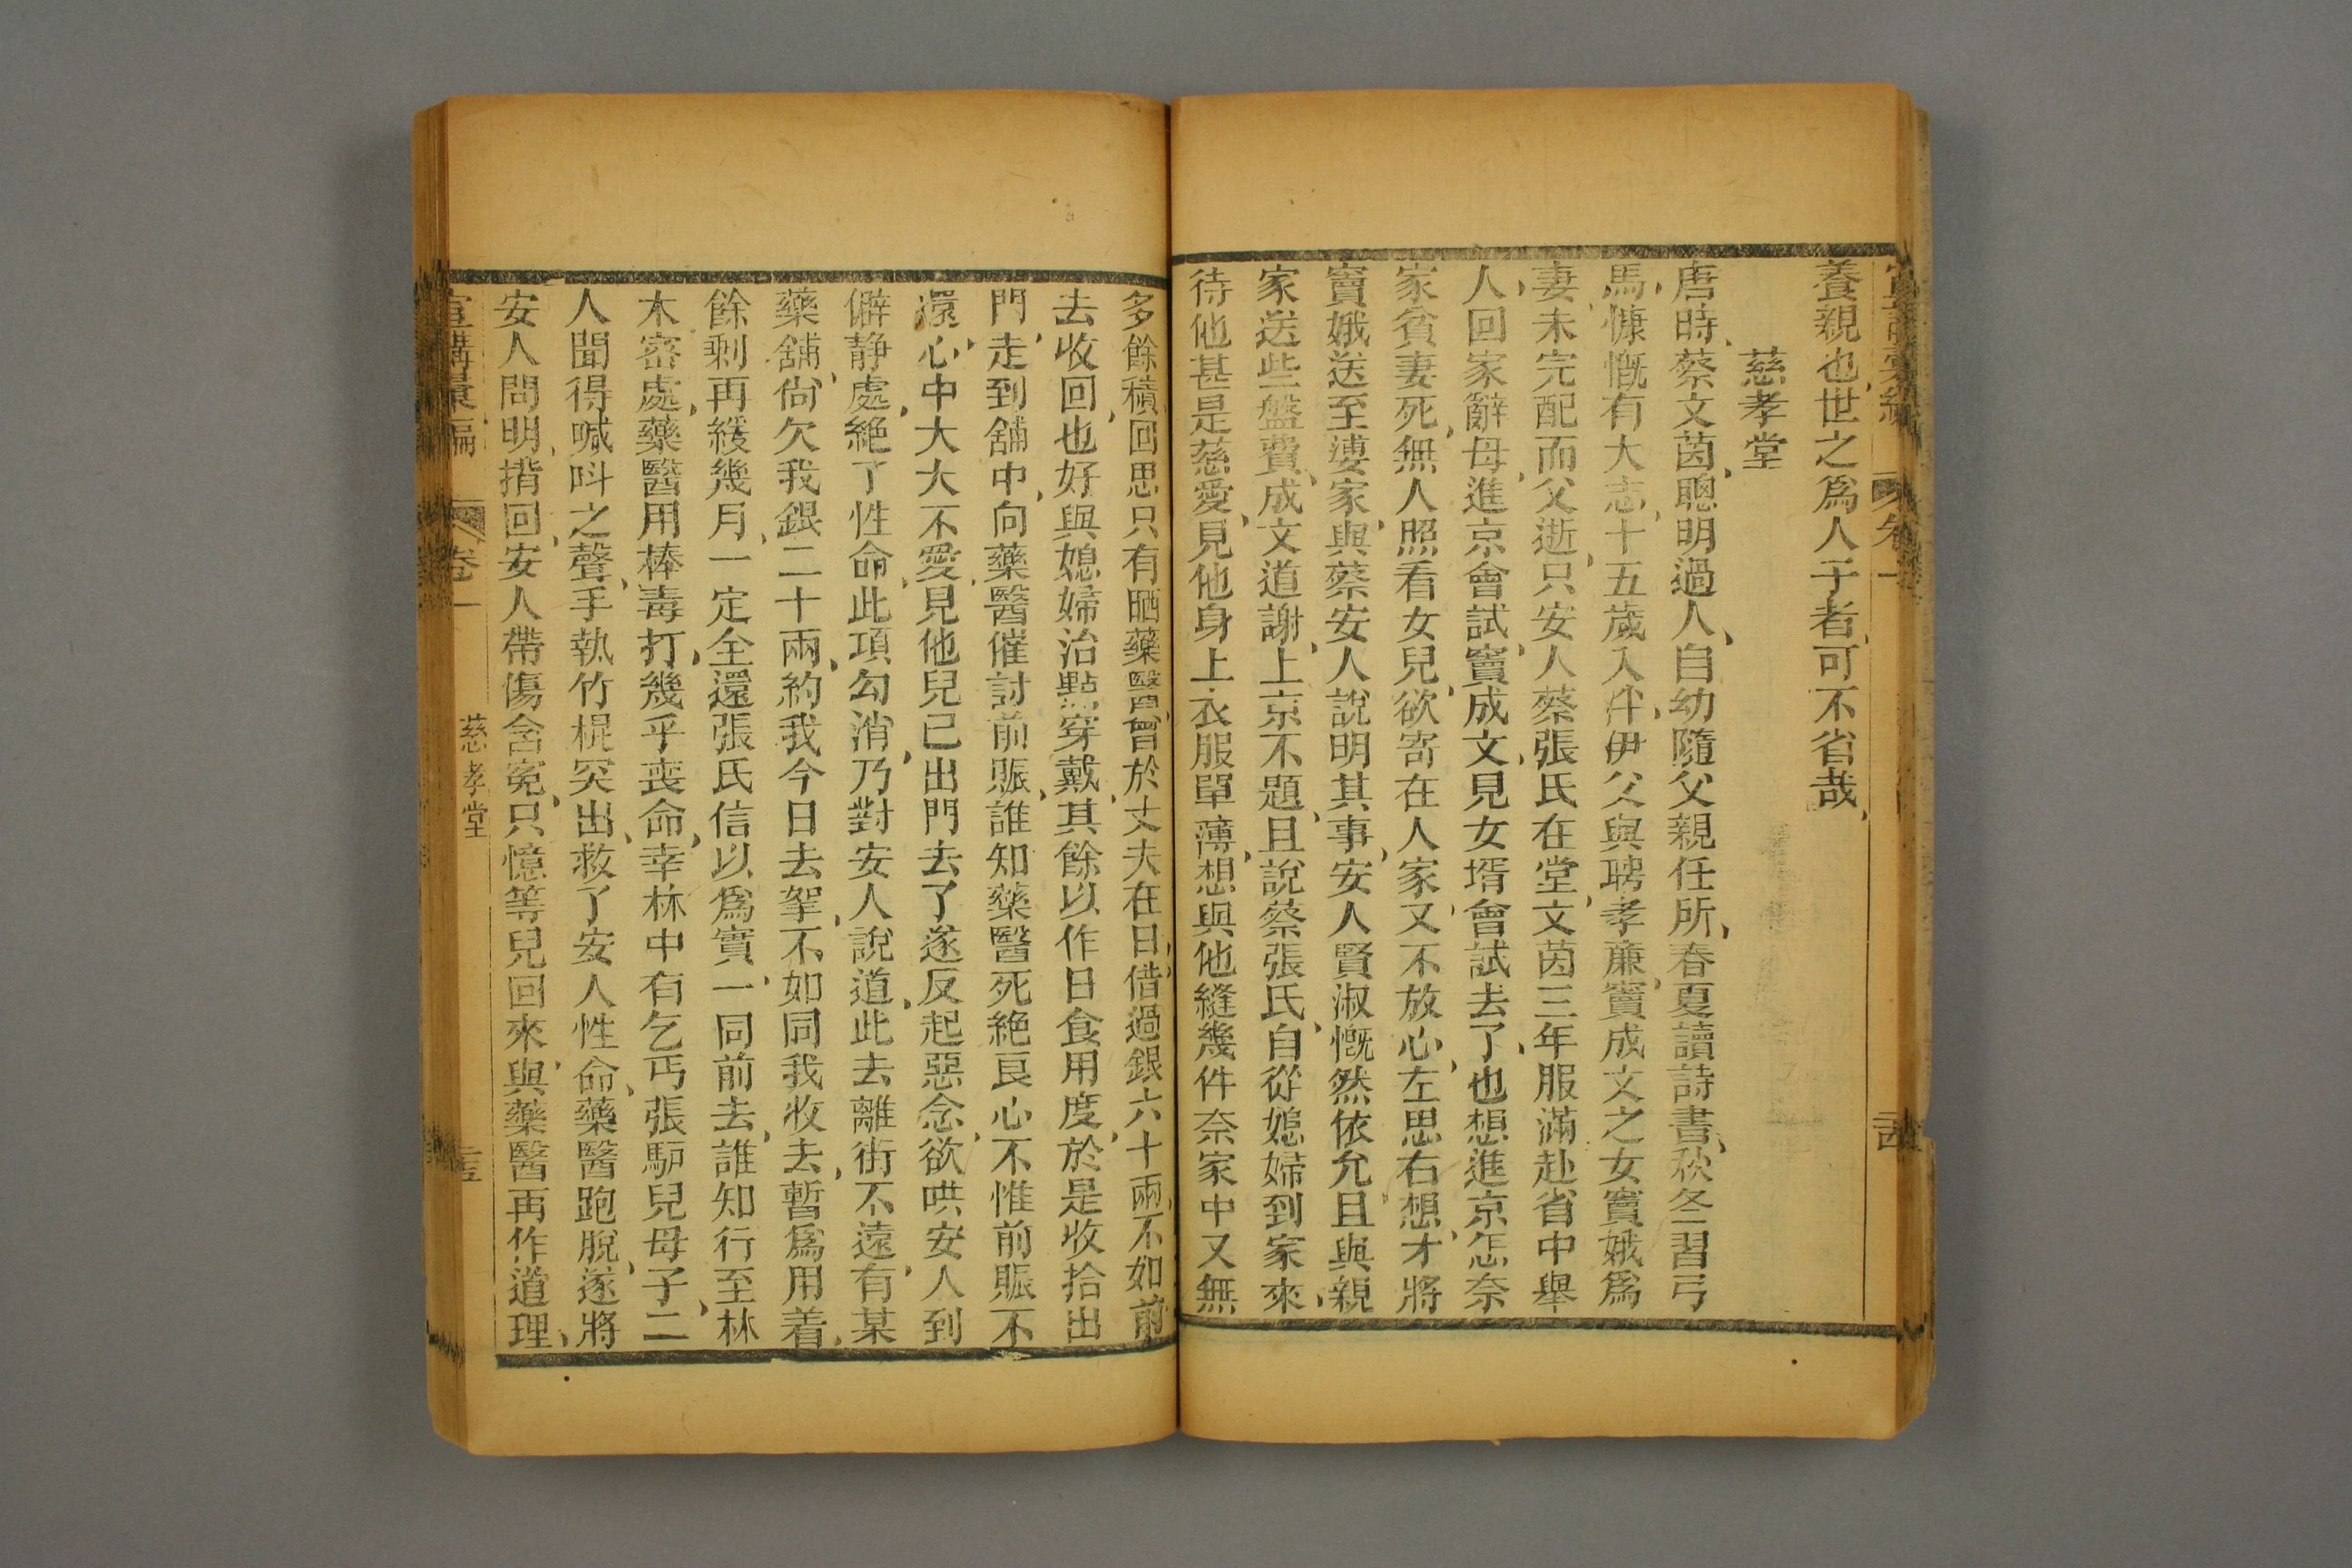 養親也世之爲人子者可不省哉
慈孝堂
唐時蔡文茵聰明過人自幼隨父親任所春夏讀詩書秋冬習弓
馬慷慨有大志十五歲入泮伊父與聘孝廉竇成文之女竇娥爲
妻未完配而父逝只安人蔡張氏在堂文茵三年服滿赴省中舉
人回家辭母進京會試竇成文見女壻會試去了也想進京怎奈
家貧妻死無人照看女兒欲寄在人家又不放心左思右想才將
竇娥送至婆家與蔡安人說明其事安人賢淑慨然依允且與親
家送些盤費成文道謝上京不題且說蔡張氏自從媳婦到家來
待他甚是慈愛見他身上衣服單薄想與他縫幾件奈家中又無
多餘積回思只有晒藥醫曾於丈夫在日借過銀六十兩不如前
去收回也好與媳婦治點穿戴其餘以作日食用度於是收拾出
門走到舖中向藥醫催討前賬誰知藥醫死絕良心不惟前賬不
還心中大大不愛見他兒已出門去了遂反起惡念欲哄安人到
僻静處絕了性命此項勾消乃對安人說道此去離街不遠有某
藥舖尙欠我銀二十兩約我今日去拏不如同我收去暫爲用着
餘剩再緩幾月一定全還張氏信以爲實一同前去誰知行至林
木密處藥醫用棒毒打幾乎丧命幸林中有乞丐張馿兒母子二
人聞得喊呌之聲手執竹棍突出救了安人性命藥醫跑脫遂將
安人問明揹回安人帶傷含寃只憶等兒回來與藥醫再作道理
宣講彙編 卷一 慈孝堂